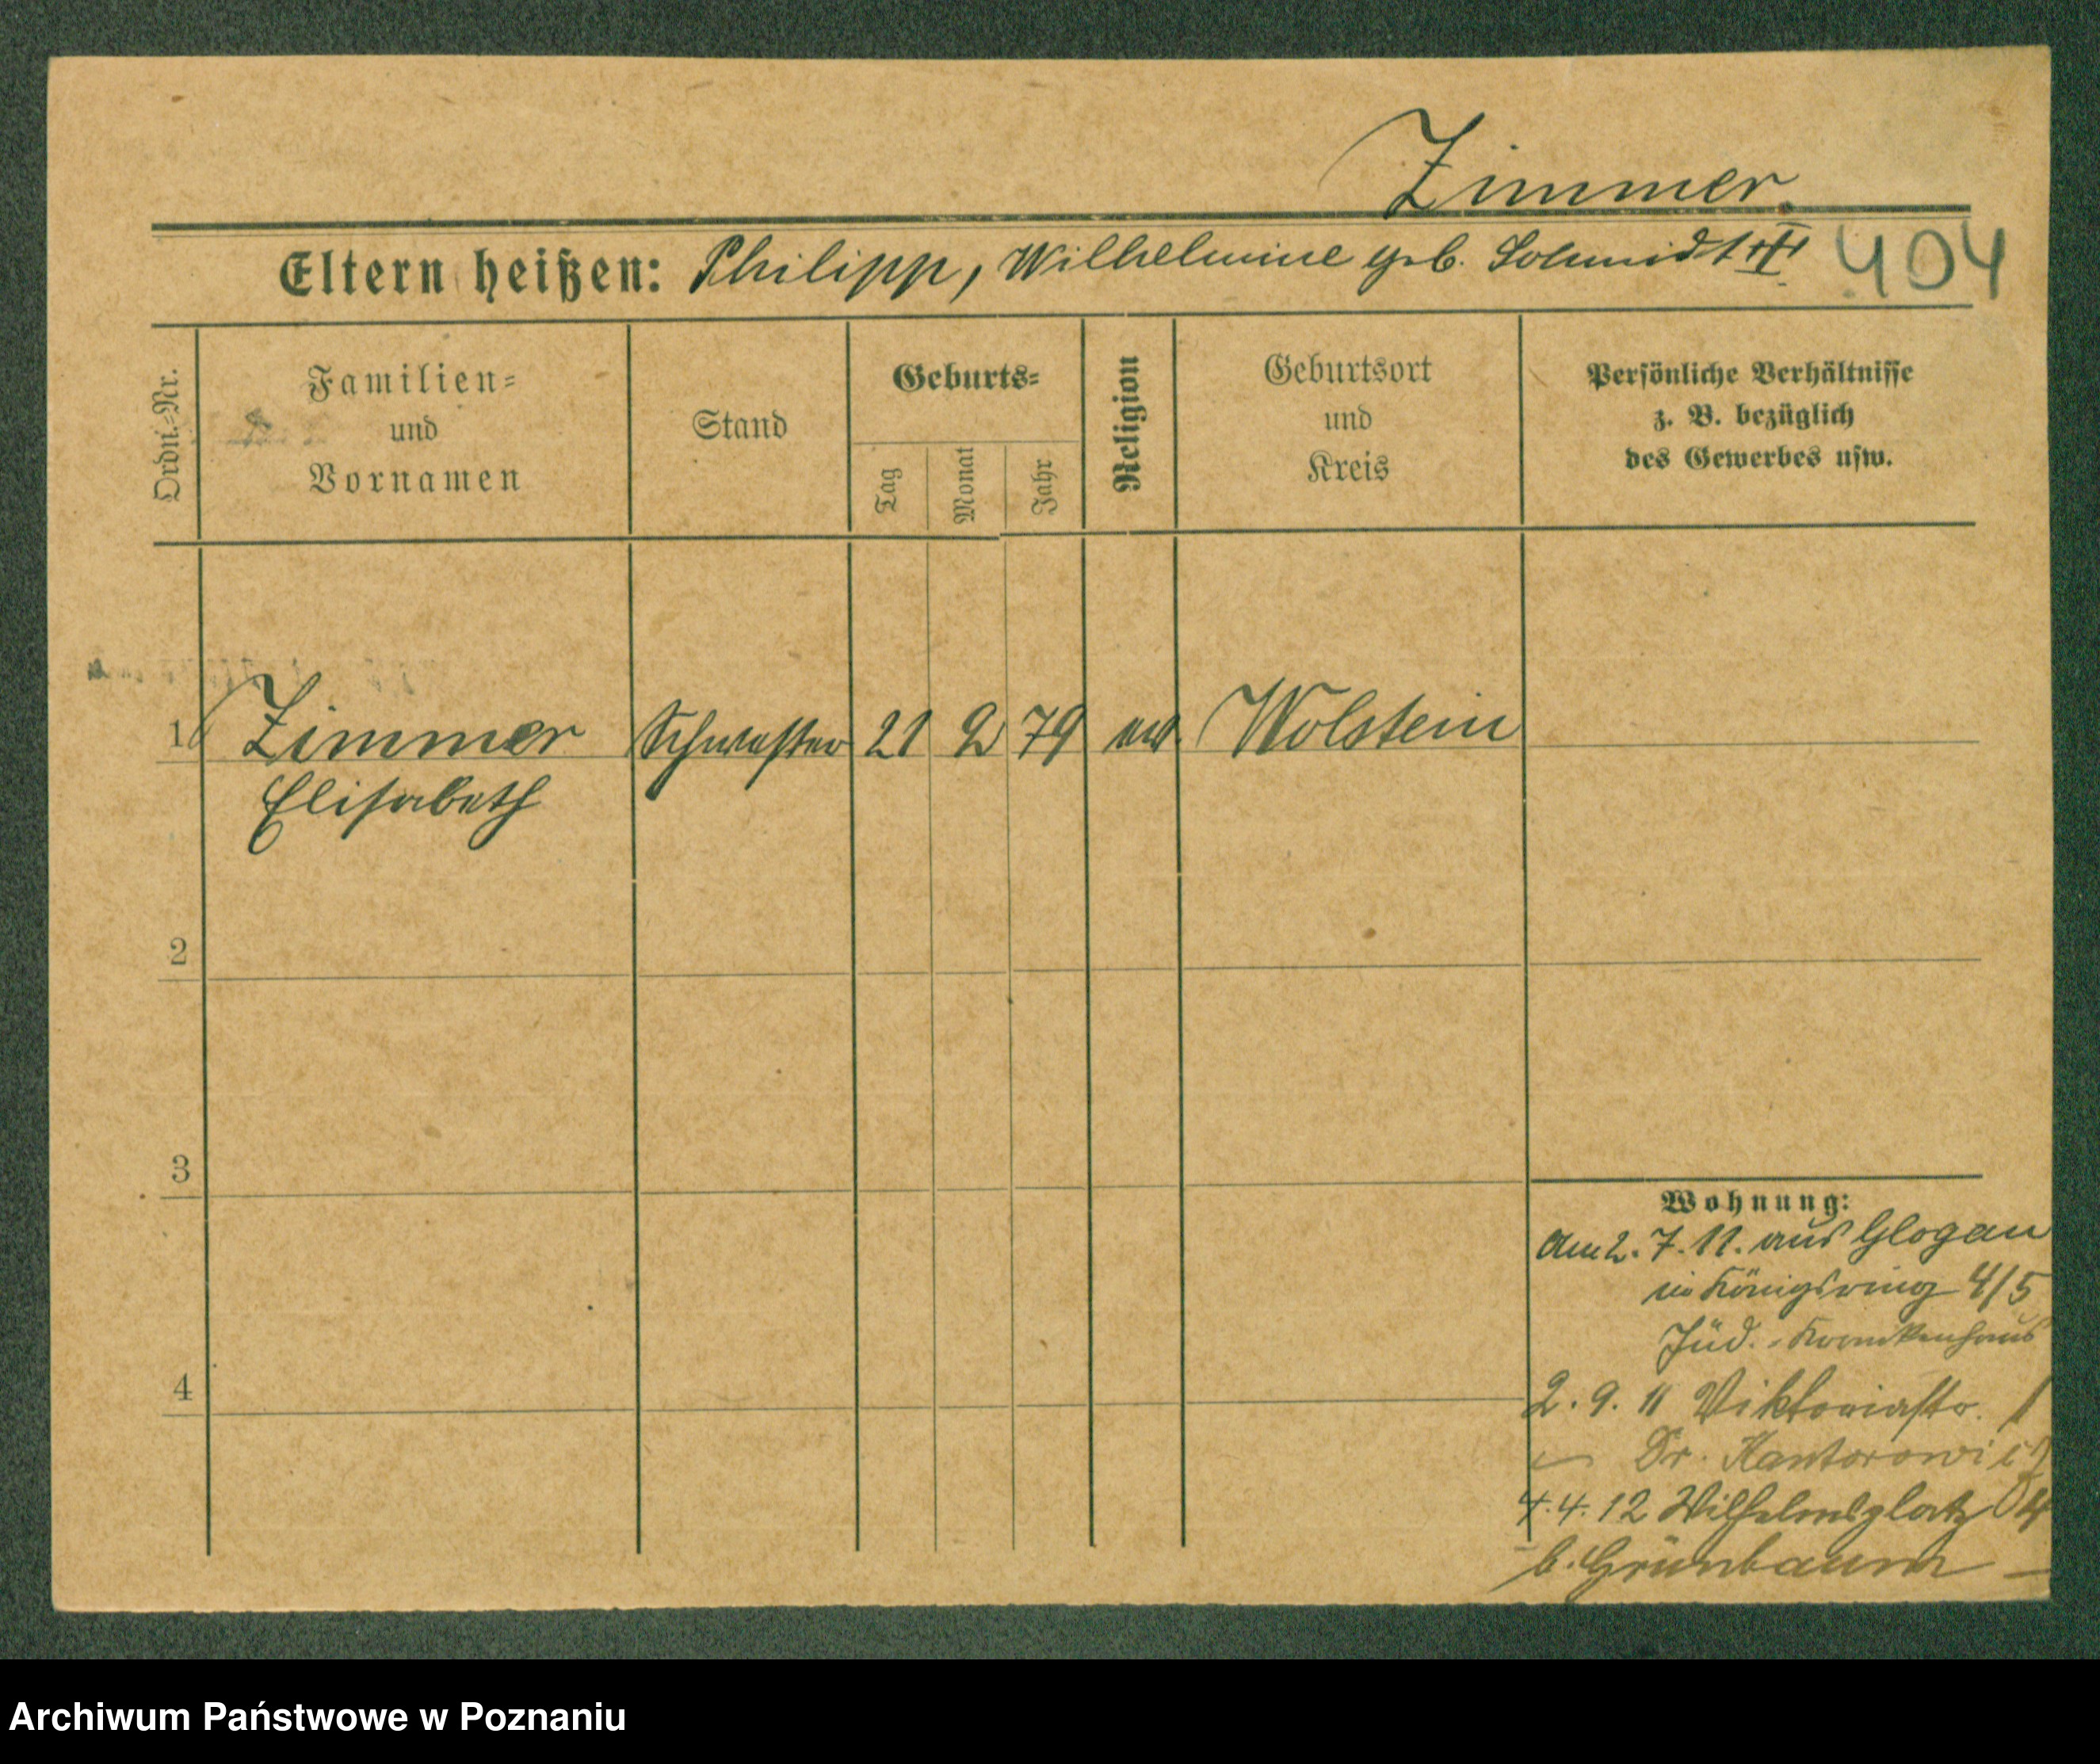 Zimmer.
Eltern heißen: Philipp, Wilhelmine geb. Schmidt
404
Ordn.=Nr.
Familien=
und
Vornamen
Stand
Geburts=
Tag
Monat
Jahr
Religion
Geburtsort
und
Kreis
Persönliche Verhältnisse
z. B. bezüglich
des Gewerbes usw.
1 Zimmer Schwester 21 2 79 Wolstein
Elisabeth
2
3
4
Wohnung:
Am 2. 7. 11. aus Glogau
in Königsring 4/5
Jüd.-Krankenhaus
2. 9. 11 Viktoriastr.
Dr. Kantorowicz
4. 4. 12 Wilhelmsplatz 4
b. Grünbaum –
Archiwum Państwowe w Poznaniu